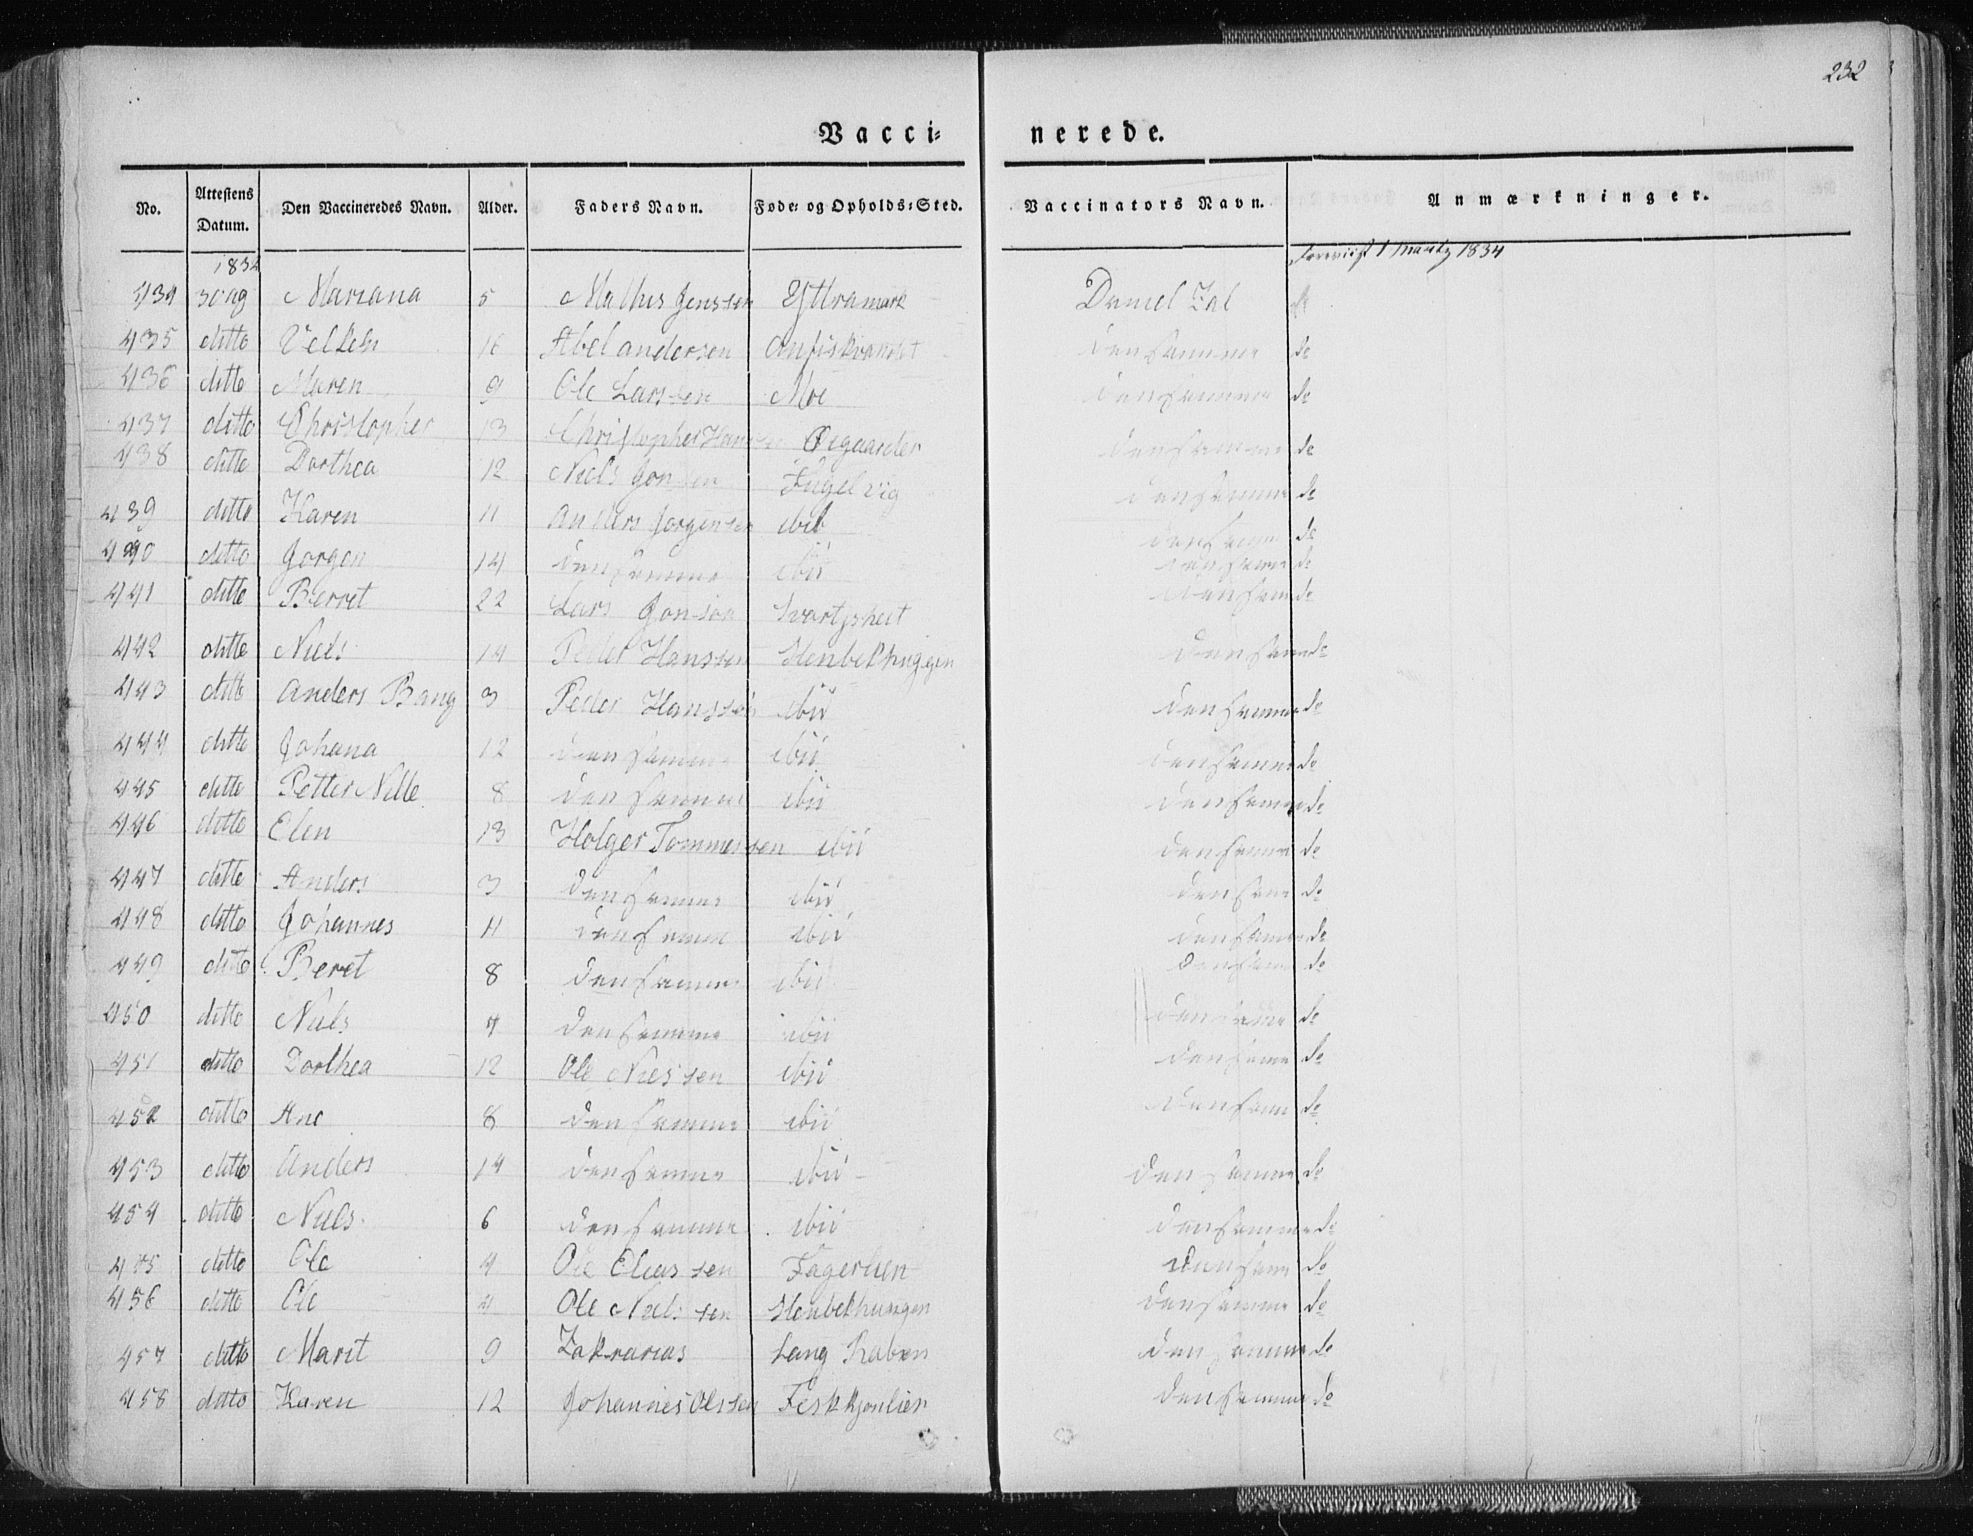 232
Vacci= nerede.
No. Attestens Datum. Den Vaccineredes Navn. Alder. Faders Navn. Føde= og Opholds=Sted. Vaccinators Navn. Anmærkninger.
1834 Foreviist 1 Martz 1834
434 30 Mariana 5 Mathis Jenssen Yttramark Daniel Zal do
435 ditto 16 Abel anderson den samme do
436 ditto Maren 9 Ole Larssen Moe den samme do
437 ditto Christopher 13 Christopher Øegaarder den samme do
438 ditto Dorthea 12 Niels Jonsen Fugelvig den samme do
439 ditto Karen 11 Anders Jorgensen ibit den samme do
440 ditto Jorgen 14 den samme ibii den samme do
441 ditto Berret 22 Lars Jonson den samme do
442 ditto Niels 14 Peder Hanssen den samme do
443 ditto Anders Bang 3 Peder Hanssen ibii den samme do
444 ditto Johana 12 den samme ibii den samme do
445 ditto Petter Nille 8 den samme ibii den samme do
446 ditto Elen 13 Holger Tommessen ibii den samme do
447 ditto Anders 3 den samme ibii den same do
448 ditto Johannes 11 den samme ibii den samme do
449 ditto Beret 8 den samme ibii den same do
450 ditto Niels 4 den samme ibii den same do
451 ditto Dorthea 12 Ole Niessen ibii den same do
452 ditto Ane 8 den samme ibii den same do
453 ditto Anders 14 den samme ibii den samme do
454 ditto Niels 6 den samme ibii den samme do
455 ditto Ole 4 Ole Eliassen Fagerlien den same do
456 ditto Ole 4 Ole Nielssen den samme do
457 ditto Marit 9 Zakrarias Lang den samme do
458 ditto Karen 12 Johannes Olssen Feskkjonlien den samme do